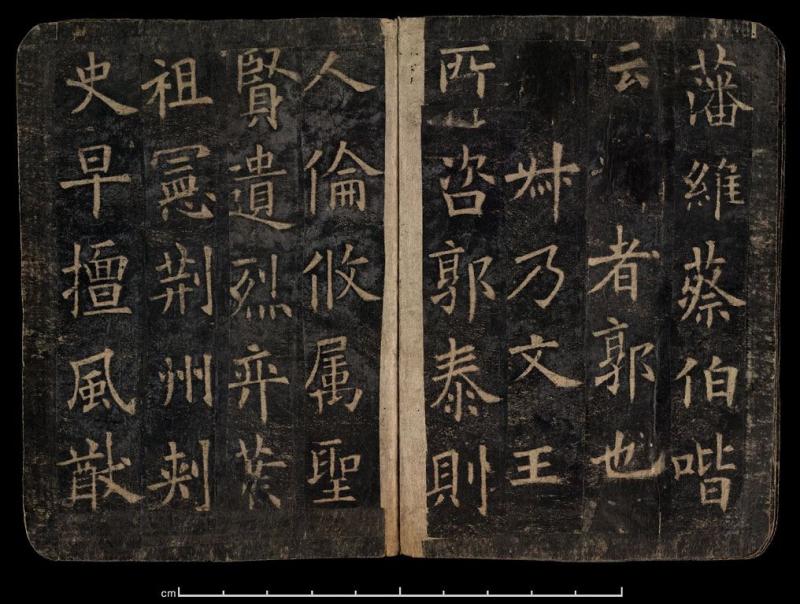 藩維蔡伯喈
云者郭也
叔乃文王
所咨郭泰則
人倫攸属聖
賢遺烈弈葉
祖憲荆州刾
史早擅風猷
cm